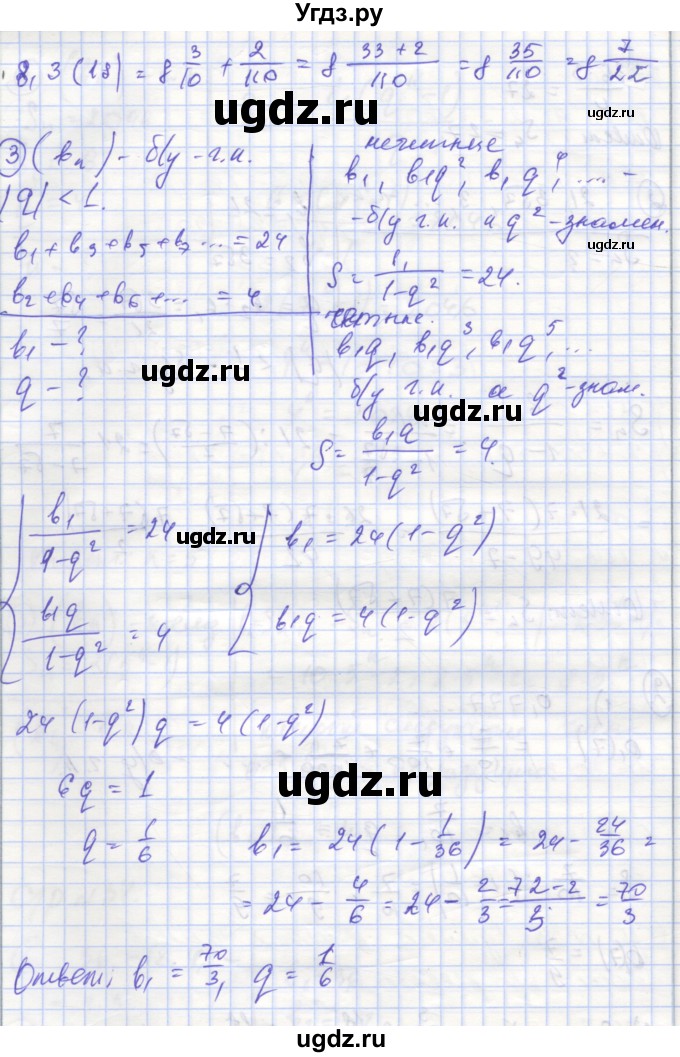 Угдз.ру
8,3(18) = 8 3/10 + 2/110 = 8 (33+2)/110 = 8 35/110 = 8 7/22
ugdz.ru
ugdz.ru
③ (bₙ) – б/у – г.п.
|q| < 1.
b₁ + b₃ + b₅ + b₇ ... = 24
b₂ + b₄ + b₆ + ... = 4.
b₁ – ?
q – ?
нечетные
b₁, b₁q², b₁q⁴, ... –
– б/у г.п. и q² – знамен.
ugdz.ru
S = b₁/(1–q²) = 24.
четные.
b₁q, b₁q³, b₁q⁵, ...
б/у г.п. q² – знам.
S = b₁q/(1–q²) = 4.
ugdz.ru
ugdz.ru
b₁/(1–q²) = 24
b₁q/(1–q²) = 4
b₁ = 24(1–q²)
b₁q = 4(1–q²)
ugdz.ru
ugdz.ru
24(1–q²)q = 4(1–q²)
6q = 1
ugdz.ru
q = 1/6
b₁ = 24(1 – 1/36) = 24 – 24/36 =
= 24 – 4/6 = 24 – 2/3 = (72–2)/3 = 70/3
Ответ: b₁ = 70/3, q = 1/6
ugdz.ru
ugdz.ru